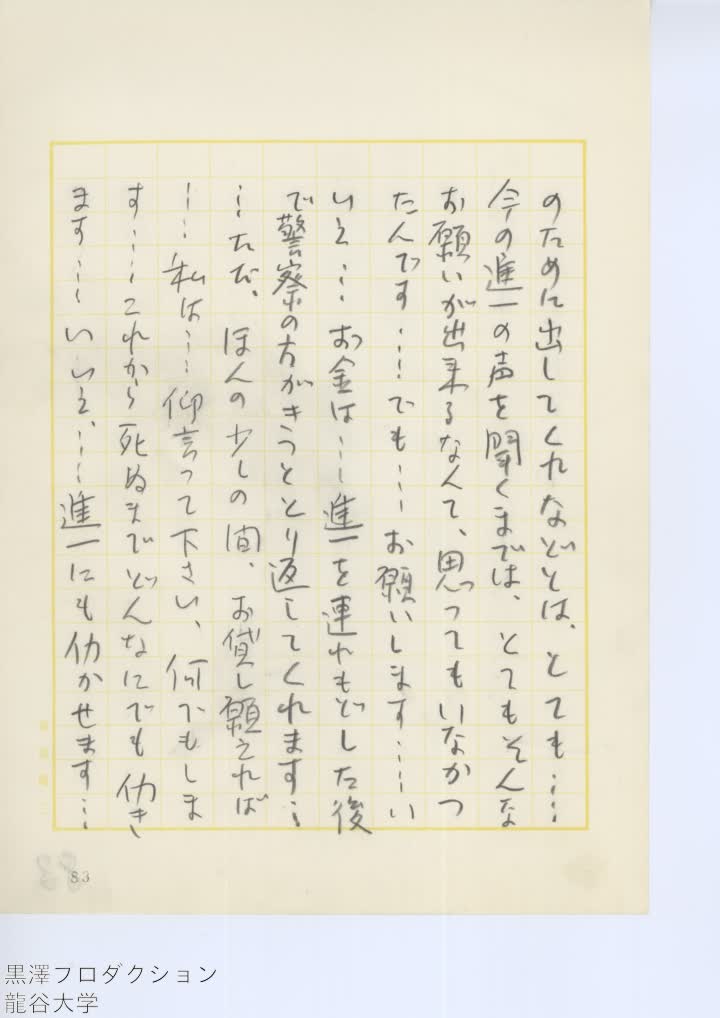 のために出してくれなどとは、とても……
今の進一の声を聞くまでは、とてもそんな
お願いが出来るなんて、思ってもいなかっ
たんです……でも……お願いします……い
いえ……お金は……進一を連れもどした後
で警察の方がきっととり返してくれます…
…ただ、ほんの少しの間、お貸し願えれば
……私は……仰言って下さい、何でもしま
す……これから死ぬまでどんなにでも仂き
ます……いいえ、……進一にも仂かせます…
83
黒澤プロダクション
龍谷大学